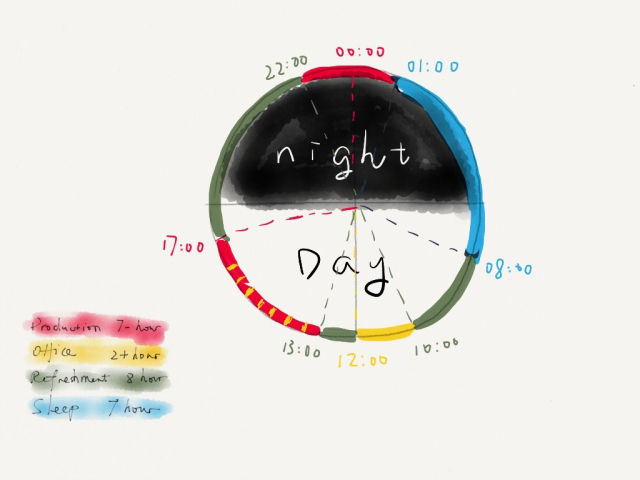 00:00
22:00
01:00
night
17:00
Day
08:00
13:00
12:00
10:00
Production 7-hour
Office 2+hour
Refreshment 8 hour
Sleep 7 hour